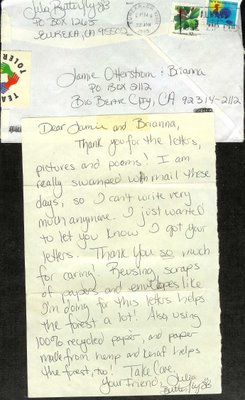 Julia Butterfly
PO BOX 1265
EUREKA, CA 95502
TEACH
TOLER
Jamie Otterstrom : Brianna
PO BOX 2112
BIG BEAR CITY, CA 92314-2112
Dear Jamie and Brianna,
Thank you for the letters,
pictures and poems! I am
really swamped with mail these
days, so I can't write very
much anymore. I just wanted
to let you know I got your
letters. Thank you so much
for caring! Reusing scraps
of papers and envelopes like
I'm doing for this letter helps
the forest a lot! Also using
100% recycled paper, and paper
made from hemp and kenaf helps
the forest, too! Take Care,
Your Friend, Julia
Butterfly